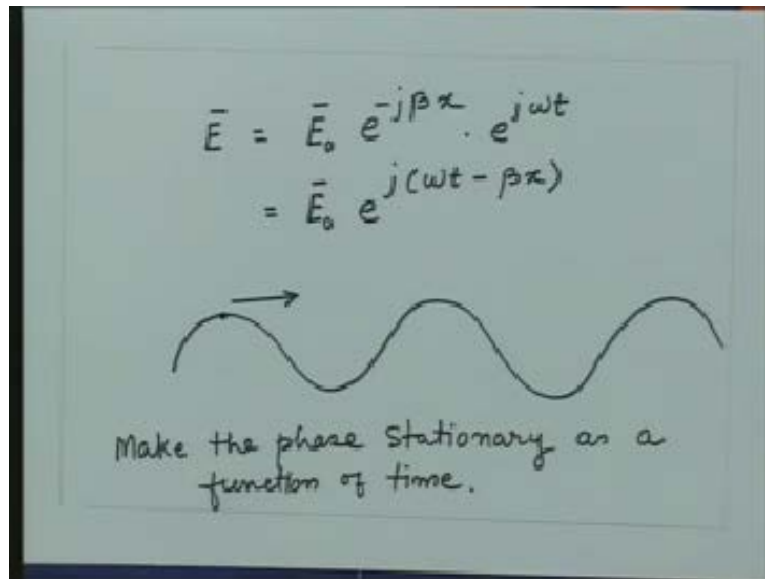 Ē = Ē₀ e^{-jβx} · e^{jωt}
= Ē₀ e^{j(ωt - βx)}
Make the phase Stationary as a
function of time.